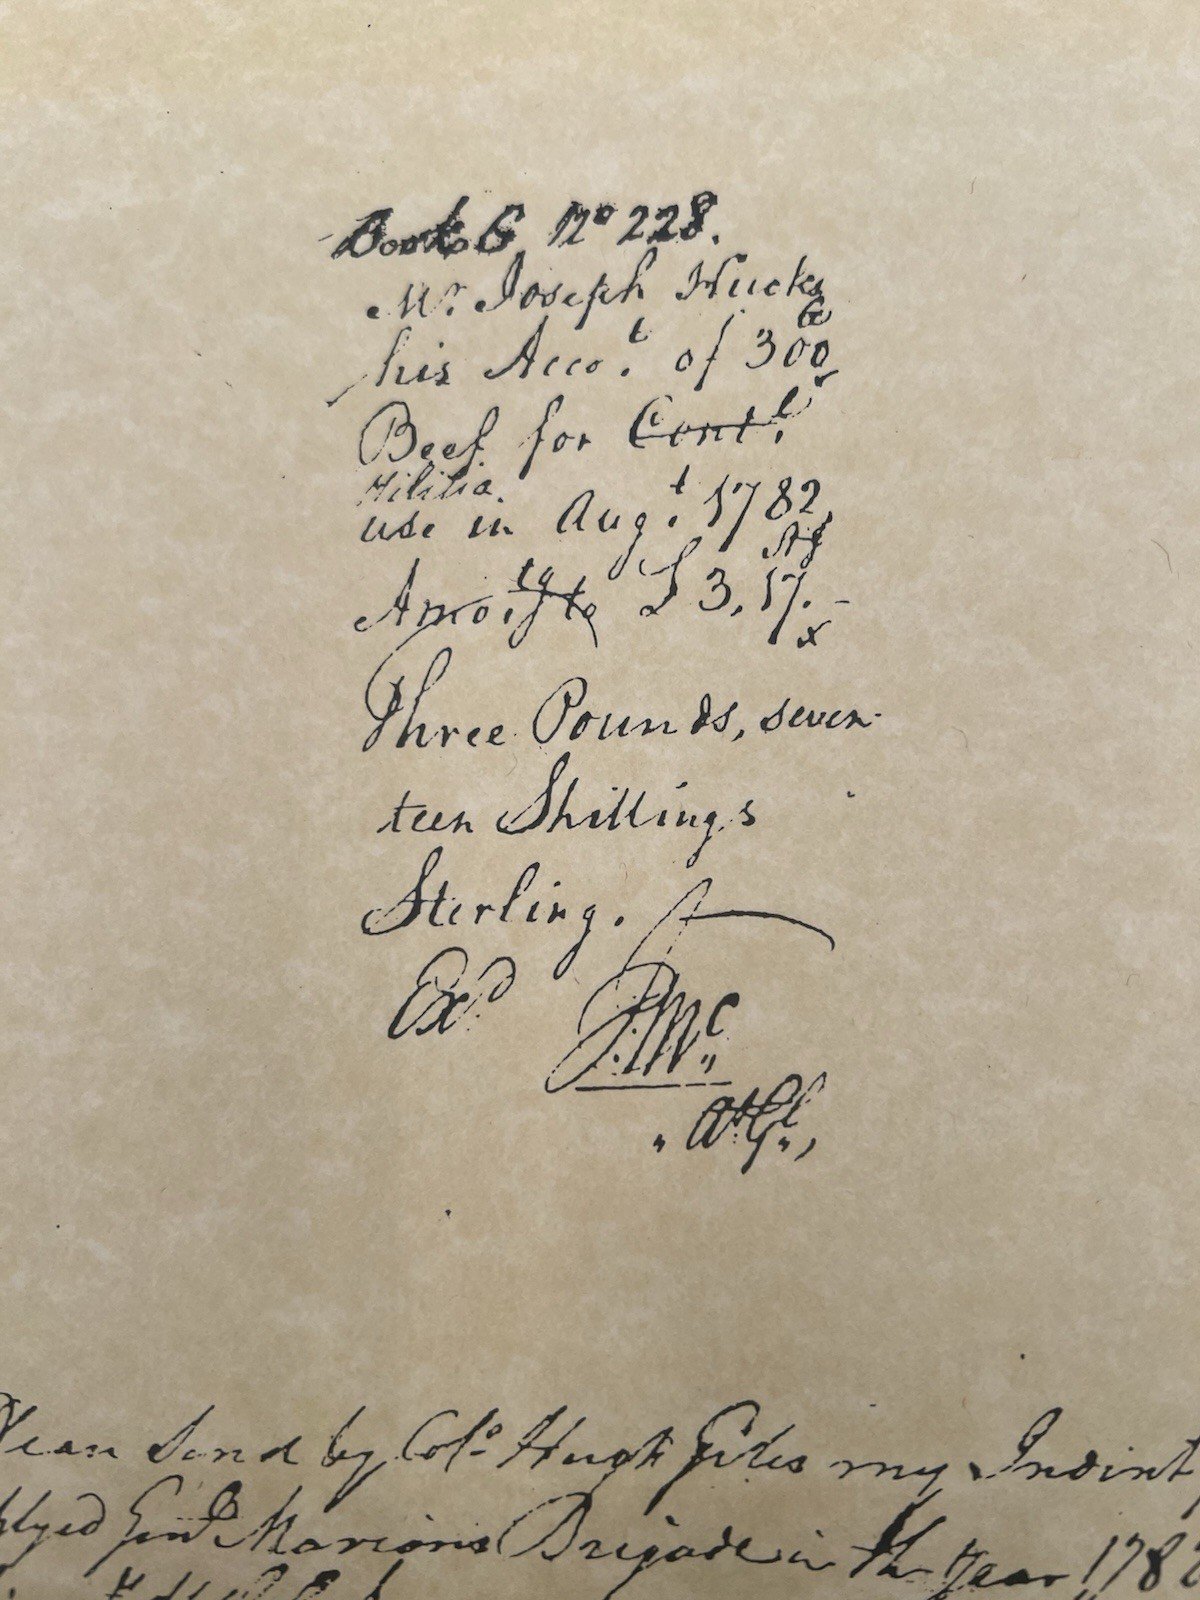 Book G No 228.
Mr. Joseph Hucks
his Acco.t of 300
Beef for Cont.l
Militia.
use in Aug.t 1782,
Stg
Amo.tg £3,17.-
Three Pounds, seven-
teen Shillings
Sterling.
Exd J.Mc
"A.G.l",
Send by Col.o Hugh Giles my Indint
Genl Marions Brigade in th year 178